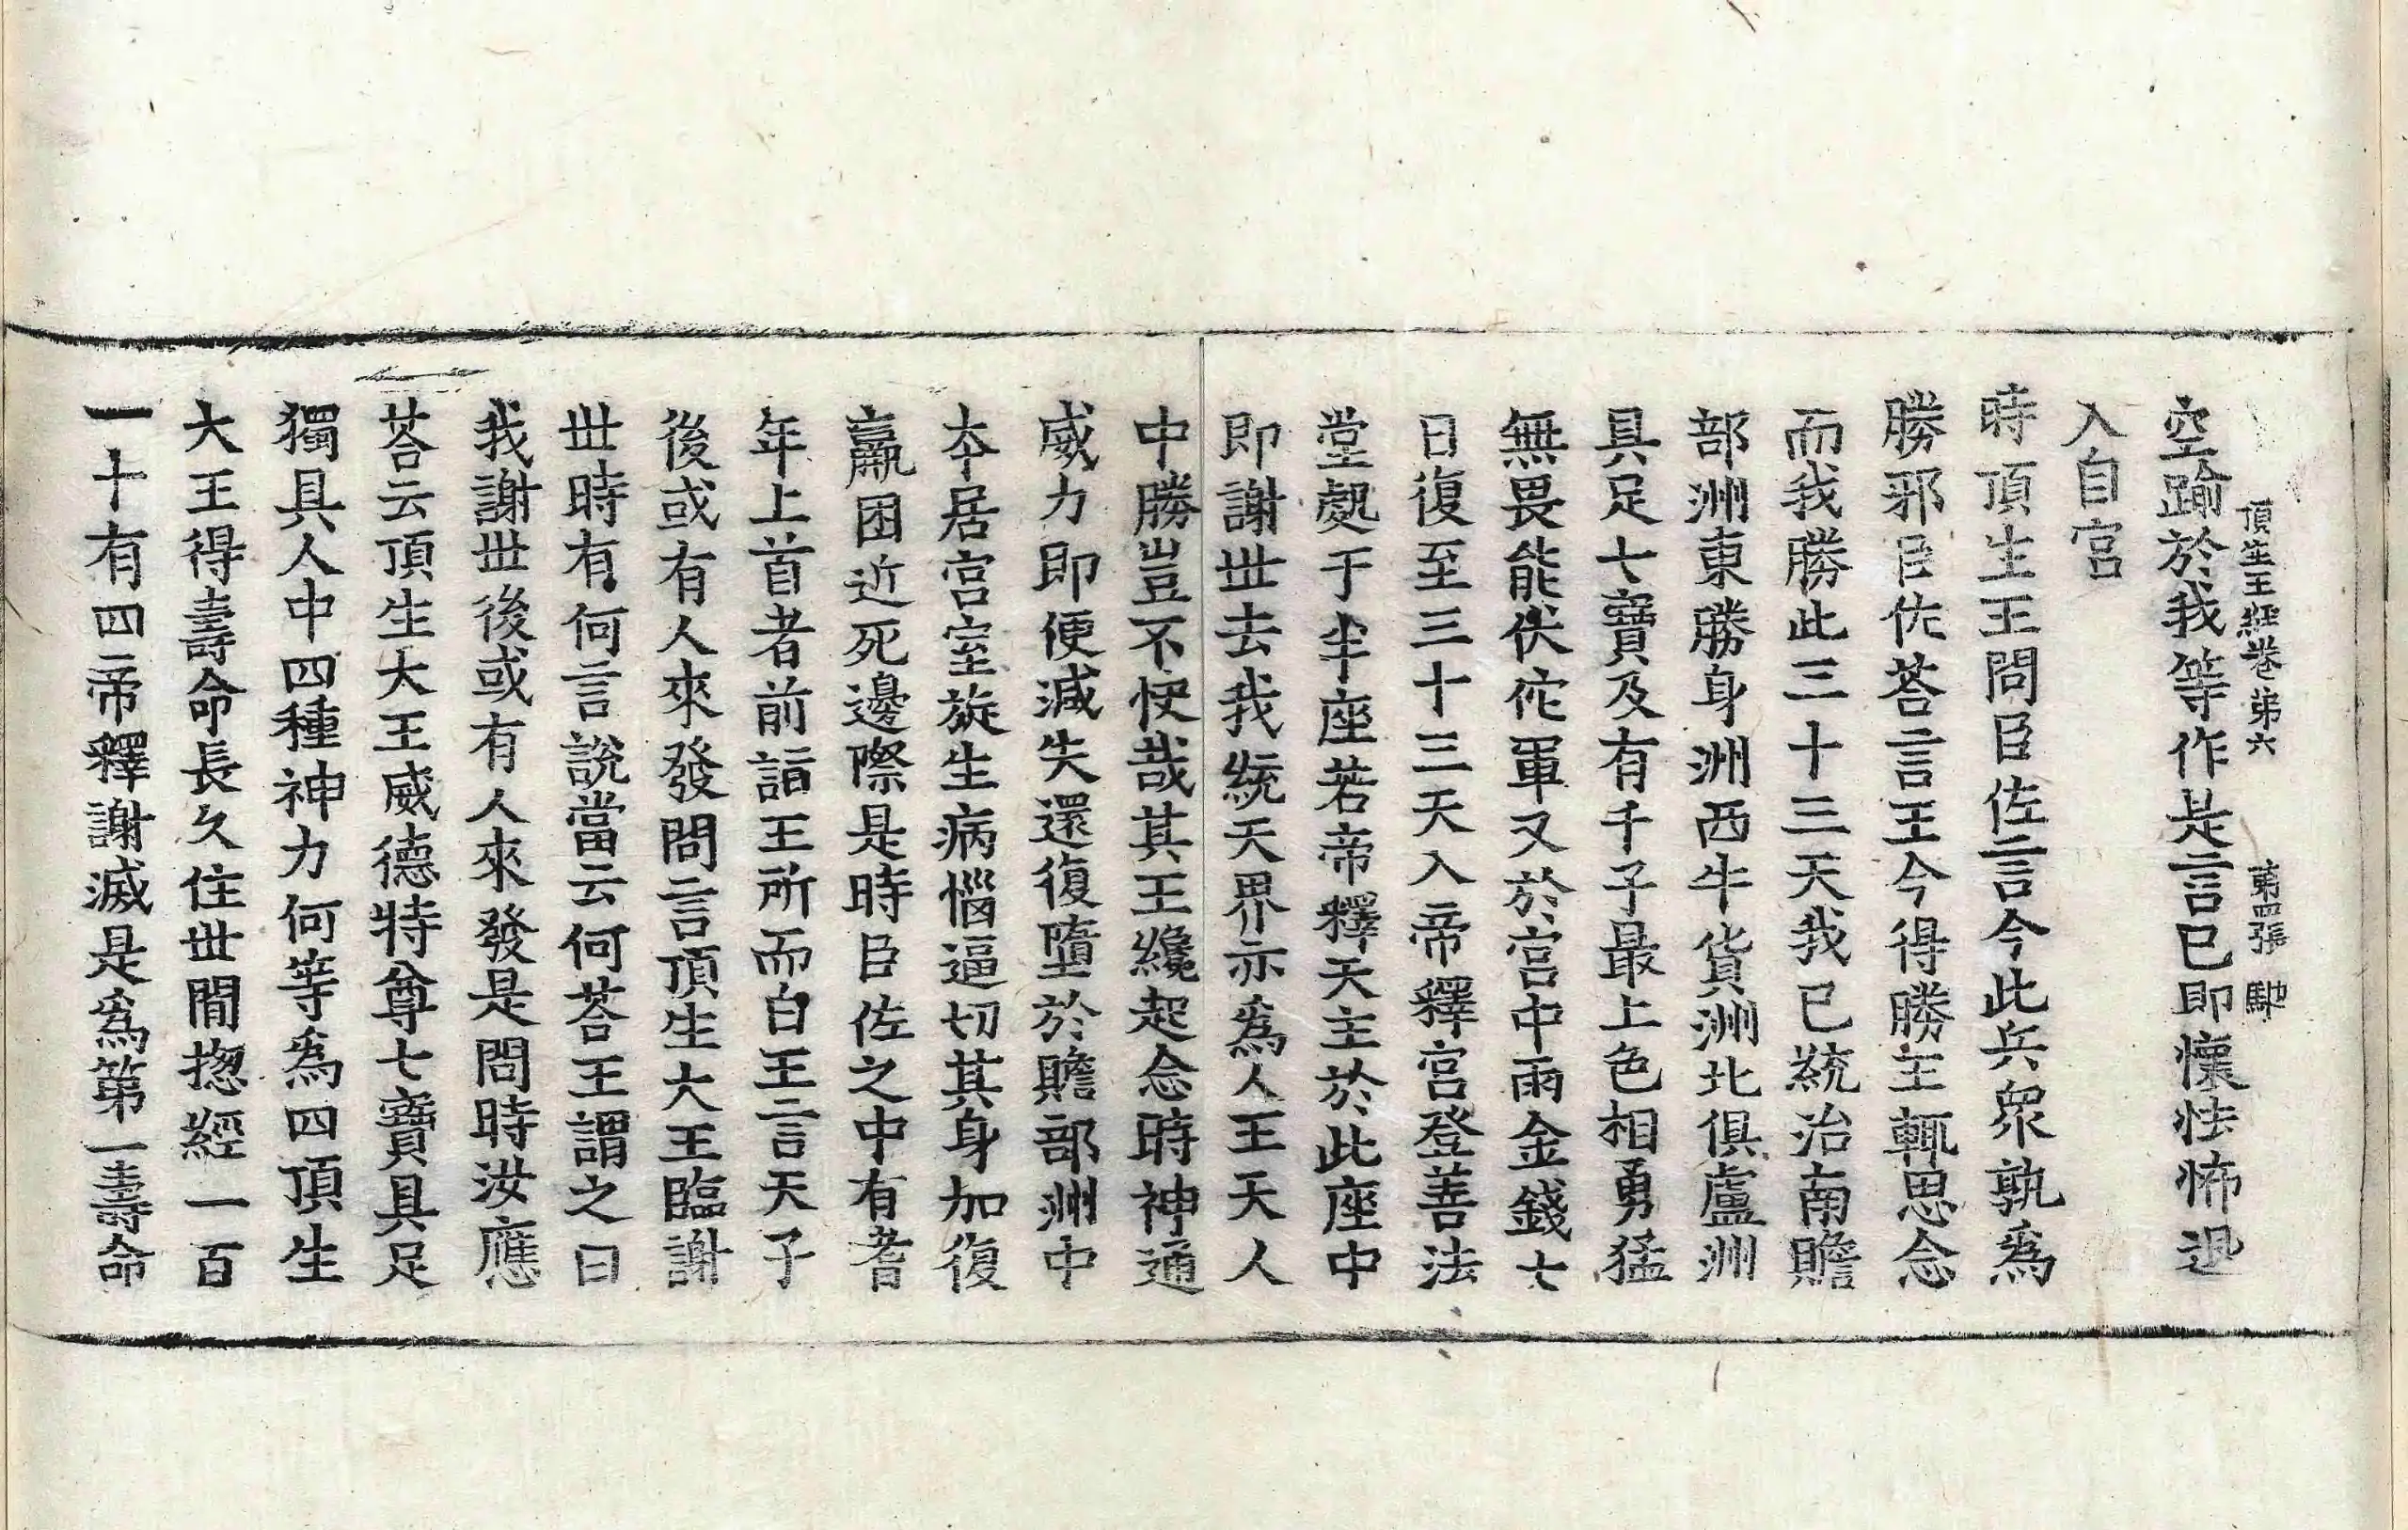 頂生王經卷第六 第四張 馳
空踰於我等作是言已即懷怯怖退
入自宮
時頂生王問臣佐言今此兵衆孰爲
勝邪臣佐荅言王今得勝主輒思念
而我勝此三十三天我已統治南贍
部洲東勝身洲西牛貨洲北俱盧洲
具足七寶及有千子最上色相勇猛
無畏能伏佗軍又於宮中雨金錢七
日復至三十三天入帝釋宮登善法
堂處于半座若帝釋天主於此座中
即謝世去我統天界亦爲人王天人
中勝豈不快哉其王纔起念時神通
威力即便減失還復墮於贍部洲中
本居宮室旋生病惱逼切其身加復
羸困近死邊際是時臣佐之中有耆
年上首者前詣王所而白王言天子
後或有人來發問言頂生大王臨謝
世時有何言說當云何荅王謂之曰
我謝世後或有人來發是問時汝應
荅云頂生大王威德特尊七寶具足
獨具人中四種神力何等爲四頂生
大王得壽命長久住世間揔經一百
一十有四帝釋謝滅是爲第一壽命